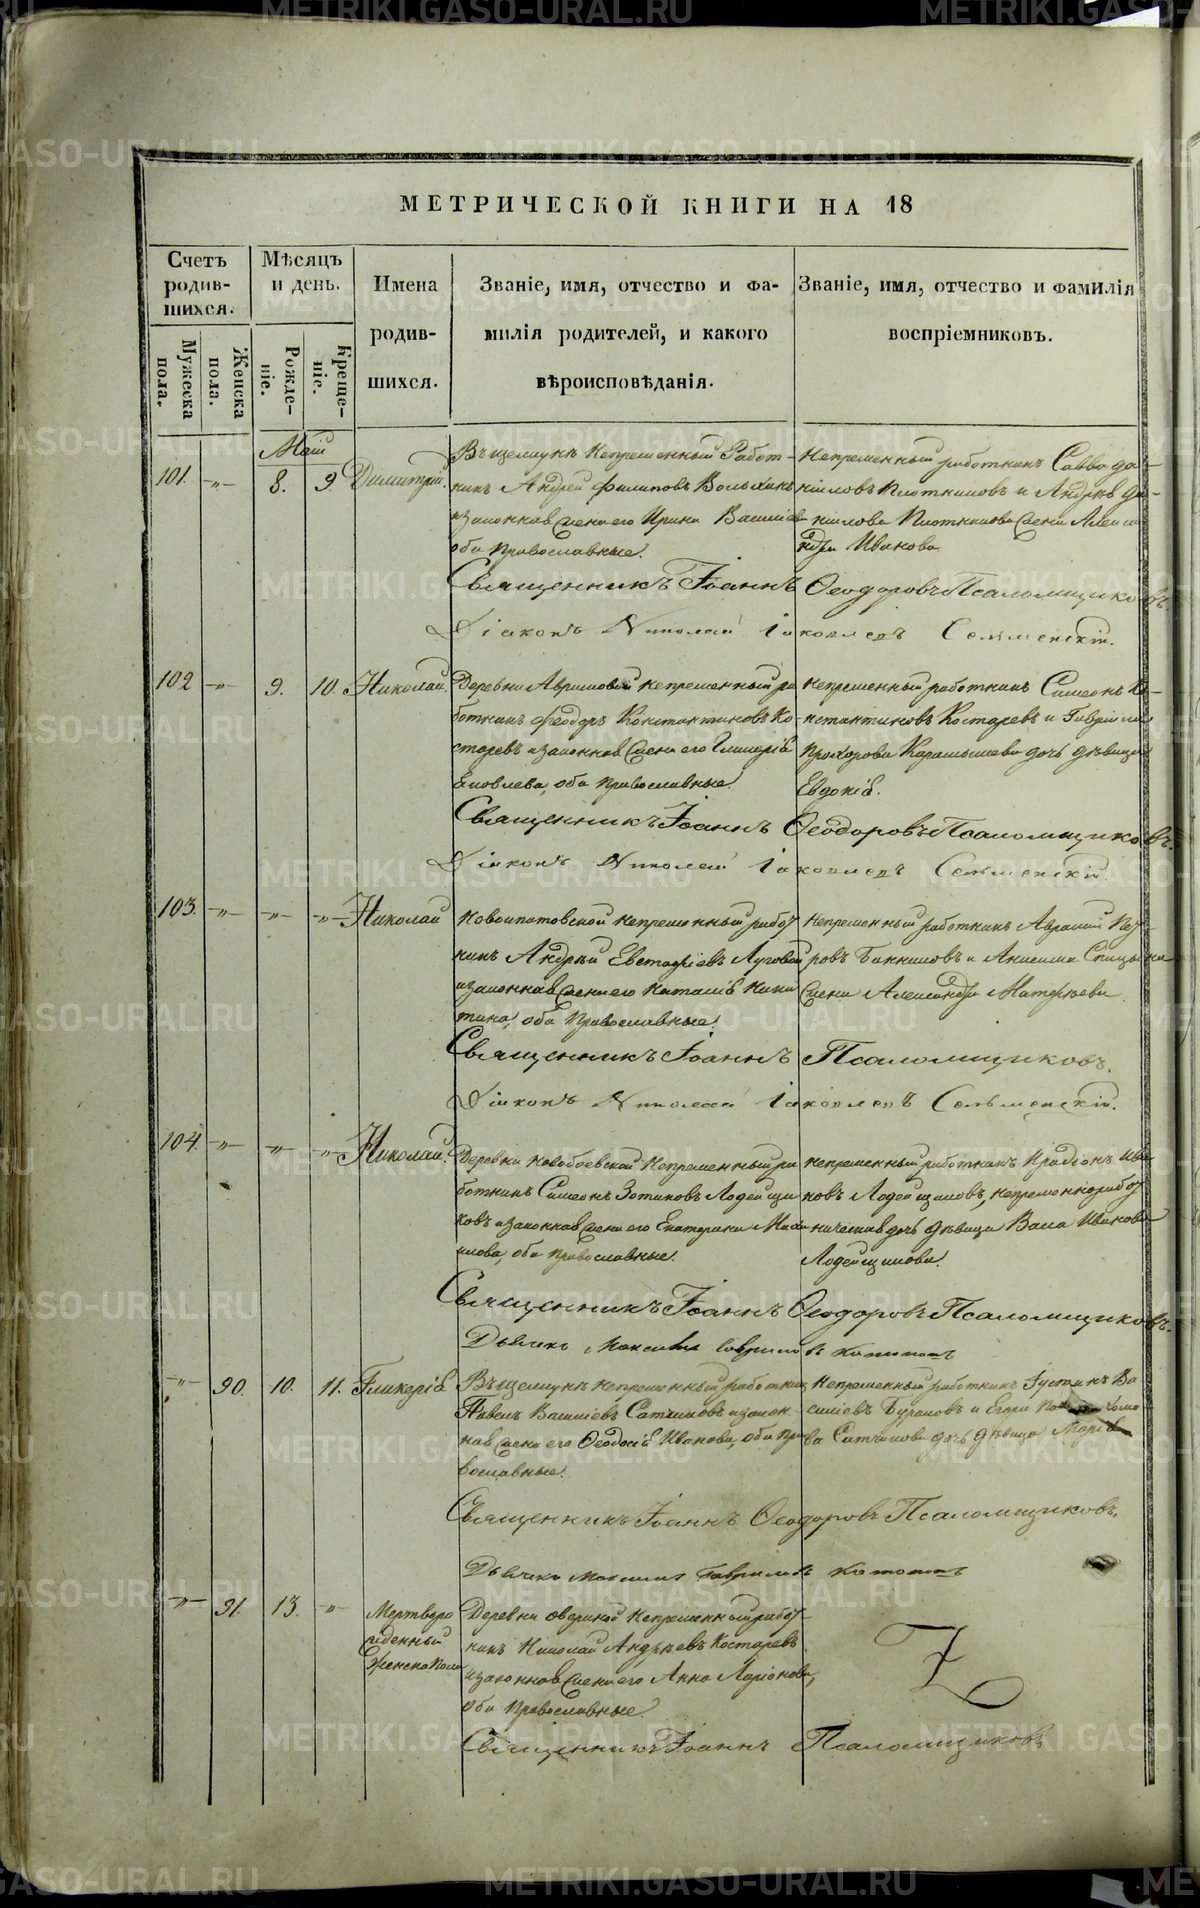 МЕТРИЧЕСКОЙ КНИГИ НА 18
Счетъ родив-шихся.
Мѣсяцъ и день.
Имена родив-шихся.
Званіе, имя, отчество и фа-
милія родителей, и какого
вѣроисповѣданія.
Званіе, имя, отчество и фамилія
воспріемниковъ.
Мужеска пола.
Женска пола.
Рожде-ніе.
Креще-ніе.
Маій
101. -„- 8. 9. Димитрій.
Непременный Работ-
никъ Андрей Филиповъ
и законная жена его Ирина Василіева
оба православные.
Непременный работникъ Савва Да-
ніиловъ Плотниковъ и Андрѣя Да-
нилова Плотникова жена Алекса-
ндра Иванова
Священникъ Іоаннъ Ѳеодоровъ Псаломщиковъ.
Діаконъ Николай Іаковлевъ
102 -„- 9. 10. Николай.
Деревни Авримовой непременный ра
ботникъ Феодоръ Константиновъ Ко-
старевъ и законная жена его Гликерія
Яковлева, оба православные.
Непременный работникъ Симеонъ Ко-
нстантиновъ Костаревъ и Гавріила
Прохорова Карамышева дочь дѣвица
Евдокія.
Священникъ Іоаннъ Ѳеодоровъ Псаломщиковъ.
Діаконъ Николай Іаковлевъ
103. -„- -„- -„- Николай
Новоипатовской непременный работ
никъ Андрей Евстафіевъ Луговой
и законная жена его Наталія Ники
тина, оба православные.
Непременный работникъ Аврамій Пет-
ровъ и Анисима Спицына
жена Александра Матфеева
Священникъ Іоаннъ Псаломщиковъ.
Діаконъ Николай Іаковлевъ
104. -„- -„- -„- Николай.
Деревни Новобоевской Непременный ра
ботникъ Симеонъ Зотиковъ Лодейщи
ковъ и законная жена его Екатерина
оба православные.
непременный работникъ Иродіонъ Ива
новъ Лодейщиковъ, непременноработ
ническая дочь дѣвица Васса Иванова
Лодейщикова.
Священникъ Іоаннъ Ѳеодоровъ Псаломщиковъ.
Дьячекъ Максимъ Гавриловъ
-„- 90. 10. 11. Гликерія
непременный работникъ
Павелъ Василіевъ и закон-
ная жена его Ѳеодосія Иванова, оба пра
вославные.
Непременный работникъ Іустинъ Ва
силіевъ Бурановъ и Егора
дочь дѣвица Марія
Священникъ Іоаннъ Ѳеодоровъ Псаломщиковъ.
Дьячекъ Максимъ Гавриловъ
-„- 91. 13. -„- Мертворо
жденный
Женска Пола
Деревни непременный работ
никъ Николай Андрѣевъ Костаревъ
и законная жена его Анна Ларіонова,
оба православные.
Священникъ Іоаннъ Псаломщиковъ
METRIKI.GASO-URAL.RU